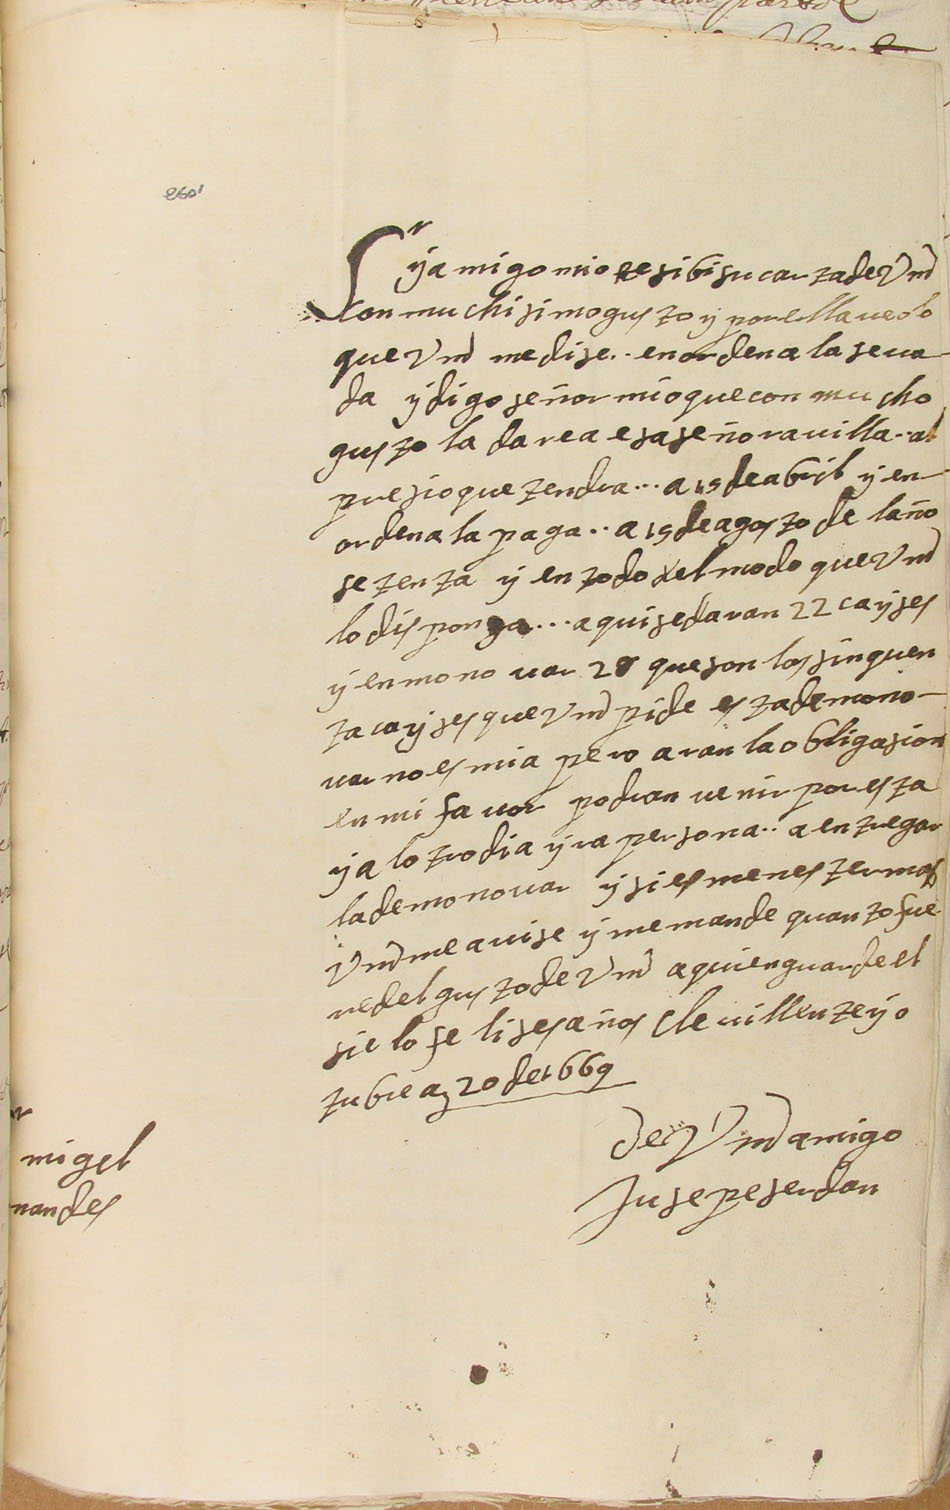 260
Sr y amigo mio Resibi su carta de Vmd
con muchisimo gusto y por ella veo lo
que Vmd me dise.. en orden a la seva-
da y digo señor mio que con mucho
gusto la dare a esa señora villa.. al
presio que tendra... a 15 de abril y en-
orden a la paga.. a 15 de agosto de laño
setenta y en todo del modo que Vmd
lo disponga... aqui se daran 22 cayses
y en monovar 28 que son los sinquen
ta cayses que Vmd pide esta de mono-
var no es mia pero aran la obligasion
en mi favor podran venir por esta
y a lo tro dia yra persona.. a entregar
la de monovar y si es menester mas
Vmd me avise y me mande quanto fue
re del gusto de Vmd a quien guarde el
sielo felises años Ele villente y o
tubre a 20 de 1669
de Vmd amigo
Jusepe serdan
migel
nandes